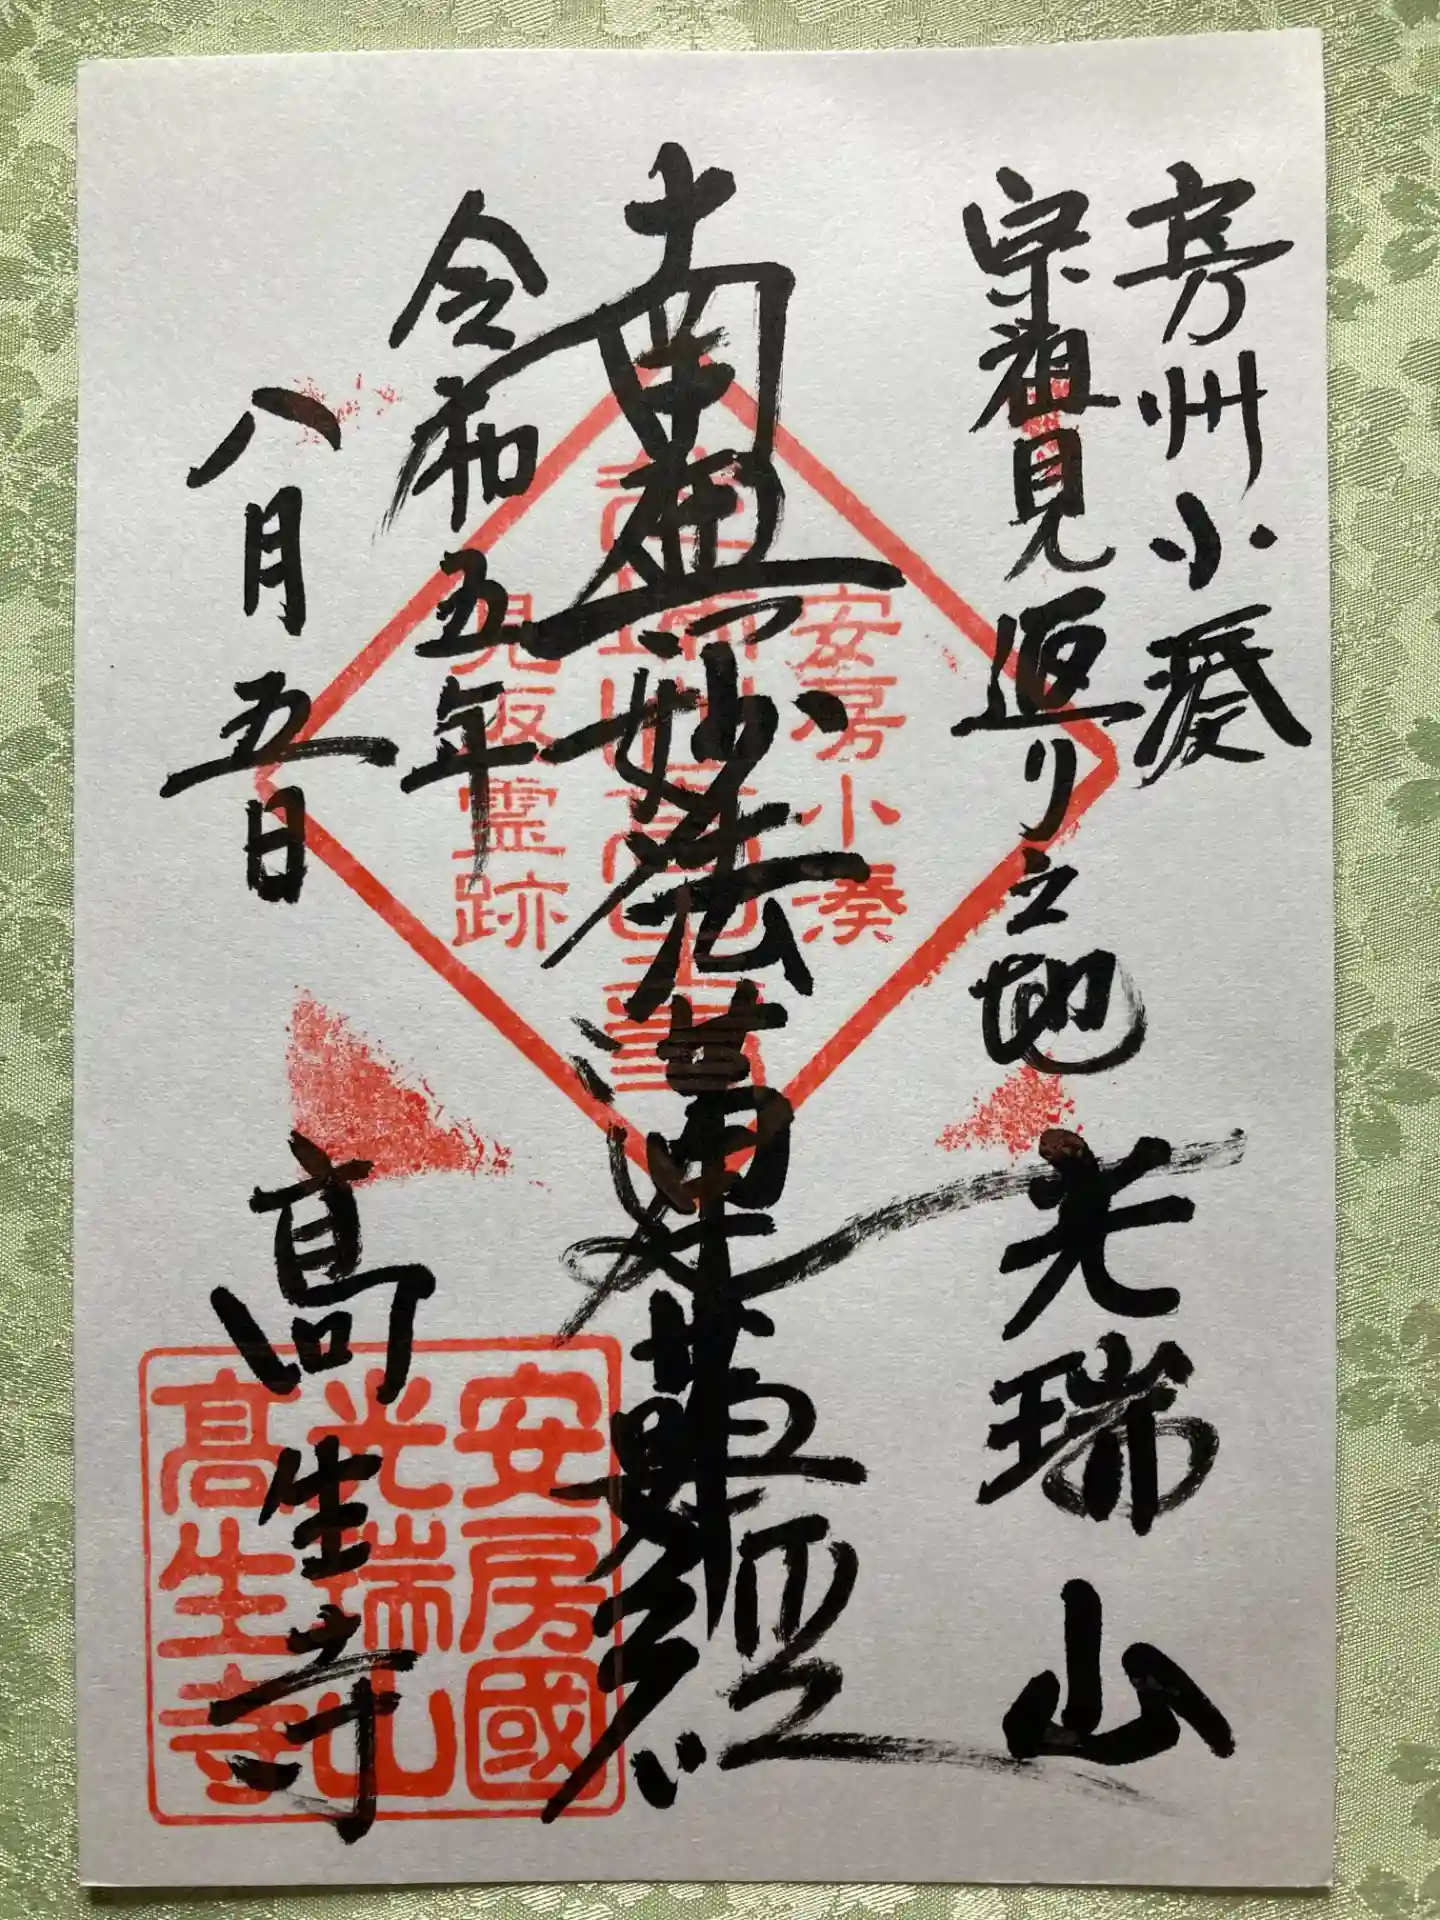 房州小湊
宗祖見返り之地
光瑞山
南無妙法蓮華経
令和五年
八月五日
高生寺
安房小湊
見返霊跡
安房國
光瑞山
高生寺